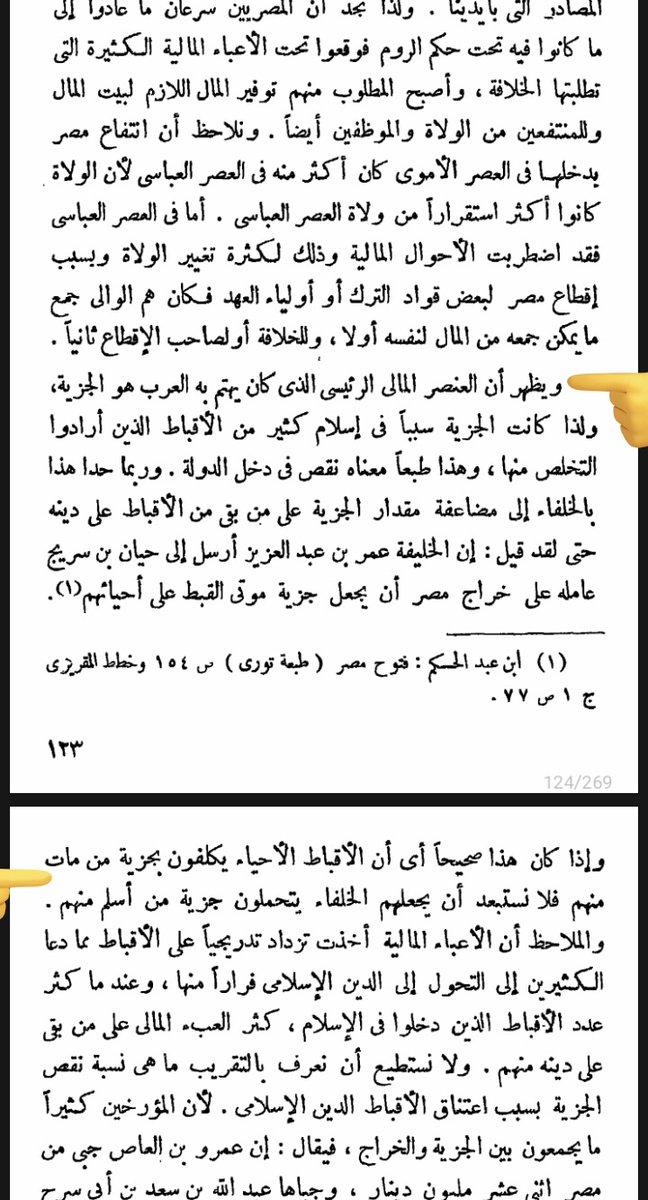 المصادر التى بأيدينا . ولذا نجد أن المصريين سرعان ما عادوا إلى
ما كانوا فيه تحت حكم الروم فوقعوا تحت الأعباء المالية الكثيرة التى
تطلبتها الخلافة ، وأصبح المطلوب منهم توفير المال اللازم لبيت المال
وللمنتفعين من الولاة والموظفين أيضاً . ونلاحظ أن انتفاع مصر
بدخلها فى العصر الأموى كان أكثر منه فى العصر العباسى لأن الولاة
كانوا أكثر استقراراً من ولاة العصر العباسى . أما فى العصر العباسى
فقد اضطربت الأحوال المالية وذلك لكثرة تغيير الولاة وبسبب
إقطاع مصر لبعض قواد الترك أو أولياء العهد فكان هم الوالى جمع
ما يمكن جمعه من المال لنفسه أولا ، وللخلافة أو لصاحب الإقطاع ثانياً .
ويظهر أن العنصر المالى الرئيسى الذى كان يهتم به العرب هو الجزية ،
ولذا كانت الجزية سبباً فى إسلام كثير من الأقباط الذين أرادوا
التخلص منها ، وهذا طبعاً معناه نقص فى دخل الدولة . وربما حدا هذا
بالخلفاء إلى مضاعفة مقدار الجزية على من بقى من الأقباط على دينه
حتى لقد قيل : إن الخليفة عمر بن عبد العزيز أرسل إلى حيان بن سريج
عامله على خراج مصر أن يجعل جزية موتى القبط على أحيائهم (١) .
(١) ابن عبد الحكم : فتوح مصر ( طبعة تورى ) ص ١٥٤ وخطط المقريزى
ج ١ ص ٧٧ .
١٢٣
124/269
وإذا كان هذا صحيحاً أى أن الأقباط الأحياء يكلفون بجزية من مات
منهم فلا نستبعد أن يجعلهم الخلفاء يتحملون جزية من أسلم منهم .
والملاحظ أن الأعباء المالية أخذت تزداد تدريجياً على الأقباط مما دعا
الكثيرين إلى التحول إلى الدين الإسلامى فراراً منها ، وعند ما كثر
عدد الأقباط الذين دخلوا فى الإسلام ، كثر العبء المالى على من بقى
على دينه منهم . ولا نستطيع أن نعرف بالتقريب ما هى نسبة نقص
الجزية بسبب اعتناق الأقباط الدين الإسلامى . لأن المؤرخين كثيراً
ما يجمعون بين الجزية والخراج ، فيقال : إن عمرو بن العاص جبى من
مصر اثنى عشر مليون دينار ، وجباها عبد الله بن سعد بن أبى سرح